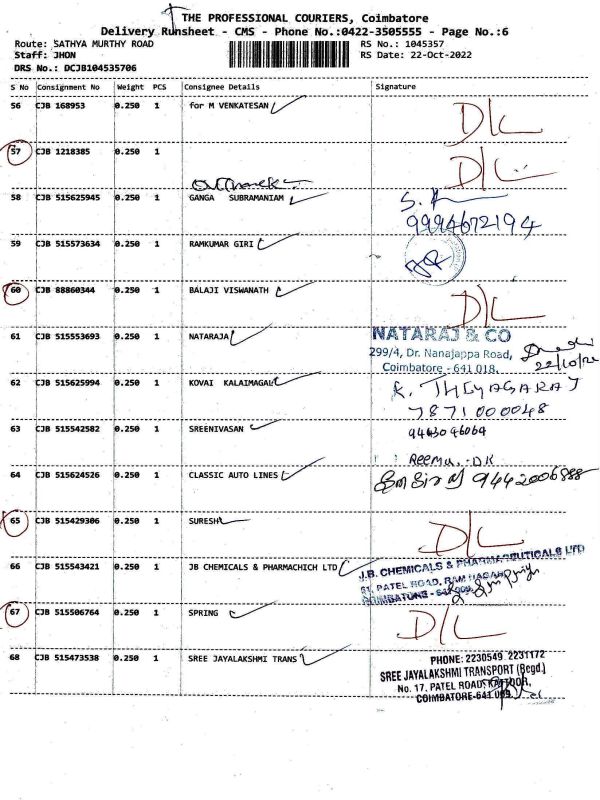 THE PROFESSIONAL COURIERS, Coimbatore
Delivery Runsheet - CMS - Phone No.:0422-3505555 - Page No.:6
Route: SATHYA MURTHY ROAD RS No.: 1045357
Staff: JHON RS Date: 22-Oct-2022
DRS No.: DCJB104535706
S No Consignment No Weight PCS Consignee Details Signature
56 CJB 168953 0.250 1 for M VENKATESAN D/L
57 CJB 1218385 0.250 1 D/L
58 CJB 515625945 0.250 1 GANGA SUBRAMANIAM S.
9994672194
59 CJB 515573634 0.250 1 RAMKUMAR GIRI
60 CJB 88860344 0.250 1 BALAJI VISWANATH D/L
61 CJB 515553693 0.250 1 NATARAJA NATARAJ & CO
299/4, Dr. Nanajappa Road,
Coimbatore - 641 018.
62 CJB 515625994 0.250 1 KOVAI KALAIMAGAL K. THIYAGARAJ
7871000048
63 CJB 515542582 0.250 1 SREENIVASAN 9443096064
Reema. - DK
64 CJB 515624526 0.250 1 CLASSIC AUTO LINES 9442006888
65 CJB 515429306 0.250 1 SURESH D/L
66 CJB 515543421 0.250 1 JB CHEMICALS & PHARMACHICH LTD J.B. CHEMICALS & PHARMACEUTICALS LTD
81, PATEL ROAD, RAM NAGAR
COIMBATORE - 641 009.
67 CJB 515506764 0.250 1 SPRING D/L
68 CJB 515473538 0.250 1 SREE JAYALAKSHMI TRANS PHONE: 2230549 2231172
SREE JAYALAKSHMI TRANSPORT (Regd.)
No. 17, PATEL ROAD, KATTOOR,
COIMBATORE-641 009.